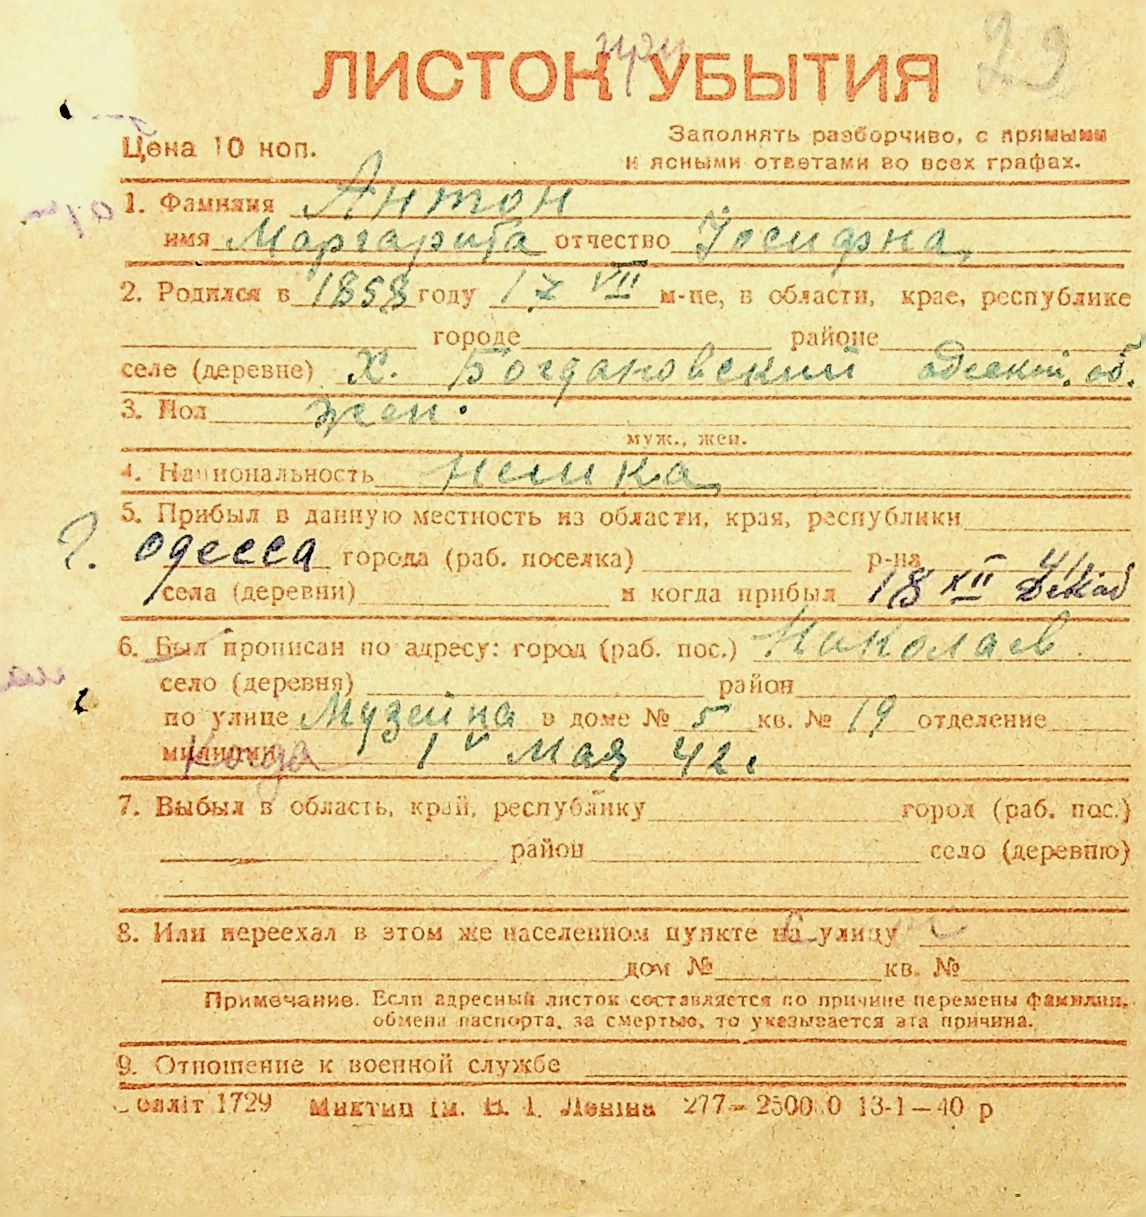 при 29
ЛИСТОК УБЫТИЯ
Заполнять разборчиво, с прямыми
Цена 10 коп.
и ясными ответами во всех графах.
1. Фамилия Антон
имя Маргарита отчество Іосифна
2. Родился в 1858 году 17 VII м-це, в области, крае, республике
городе районе
селе (деревне) х. Богдановский одеской об.
3. Пол жен.
муж., жен.
4. Национальность немка
5. Прибыл в данную местность из области, края, республики
г. Одесса города (раб. поселка) р-на
села (деревни) и когда прибыл 18 XII декаб
6. Был прописан по адресу: город (раб. пос.) Николаев
село (деревня) район
по улице Музейна в доме № 5 кв. № 19 отделение
милиции Когда 1 Мая 42 г.
7. Выбыл в область, край, республику город (раб. пос.)
район село (деревню)
8. Или переехал в этом же населенном пункте на улицу
дом № кв. №
Примечание. Если адресный листок составляется по причине перемены фамилии,
обмена паспорта, за смертью, то указывается эта причина.
9. Отношение к военной службе
1729 ім. В. І. Леніна 13-1—40 р